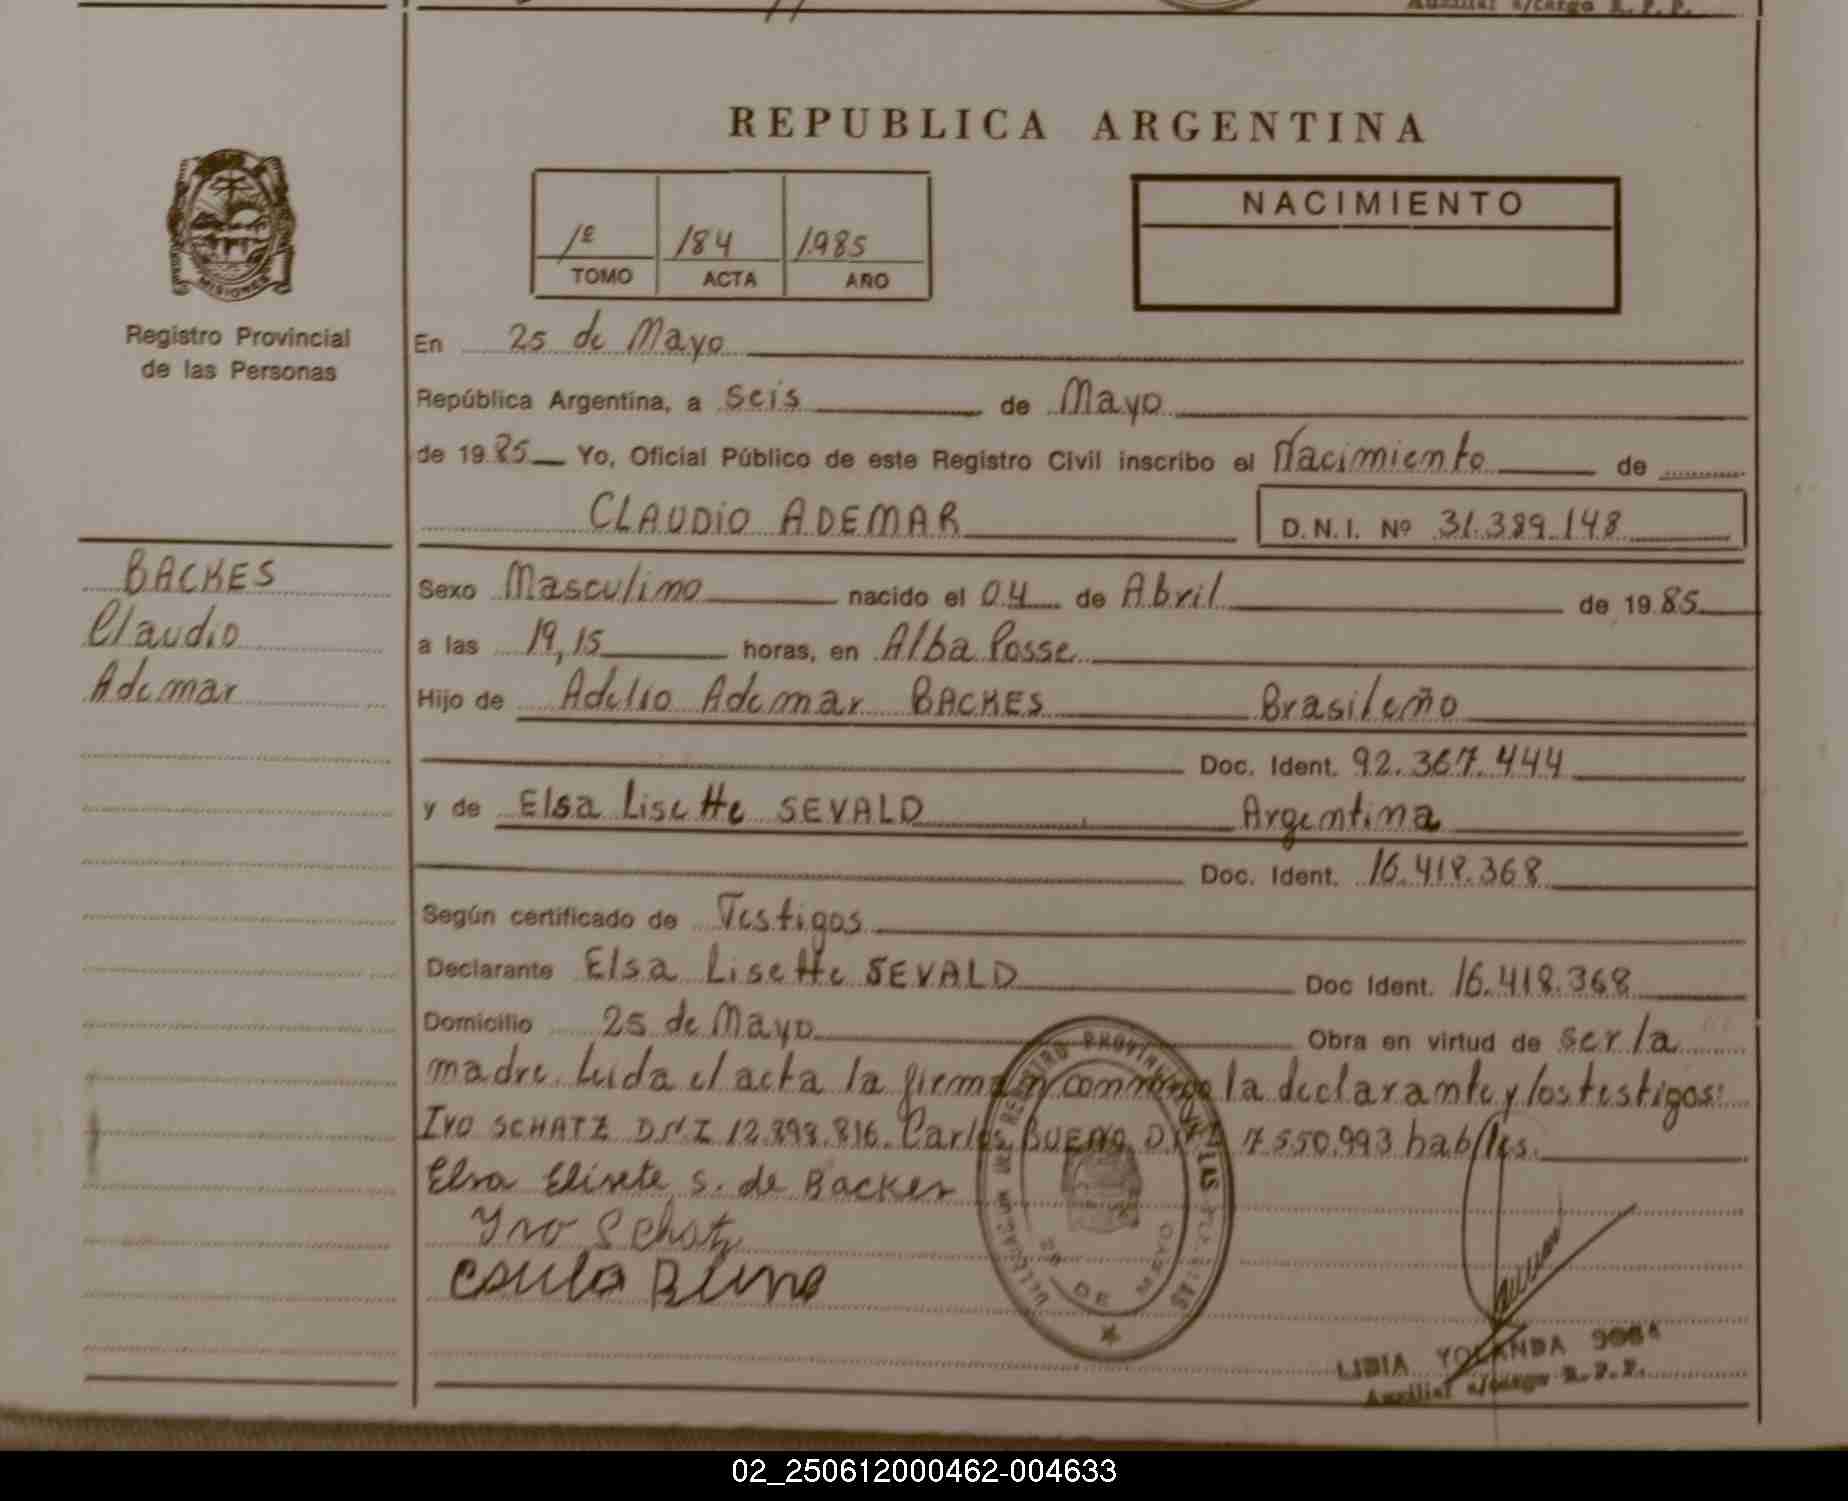 Auxiliar a/cargo R. P. P.
REPUBLICA ARGENTINA
NACIMIENTO
1º 184 1985
TOMO ACTA AÑO
MISIONES
Registro Provincial
de las Personas
En 25 de Mayo
República Argentina, a seis de Mayo
de 1985 Yo, Oficial Público de este Registro Civil inscribo el Nacimiento de
CLAUDIO ADEMAR D.N.I. Nº 31.389.148
BACKES
Claudio
Ademar
Sexo Masculino nacido el 04 de Abril de 1985
a las 19,15 horas, en Alba Posse
Hijo de Adelio Ademar BACKES Brasileño
Doc. Ident. 92.367.444
y de Elsa Lisette SEVALD Argentina
Doc. Ident. 16.418.368
Según certificado de Testigos
Declarante Elsa Lisette SEVALD Doc Ident. 16.418.368
Domicilio 25 de Mayo Obra en virtud de ser la
madre. Leida el acta la firman conmigo la declarante y los testigos:
Ivo SCHATZ DNI 12.898.816. Carlos BUENO DNI 7.550.993 habiles.
Elsa Elisete S. de Backes
Yvo Schatz
REGISTRO PROVINCIAL DE LAS
25 DE MAYO
LIDIA YOLANDA
Auxiliar a/cargo R. P. P.
02_250612000462-004633